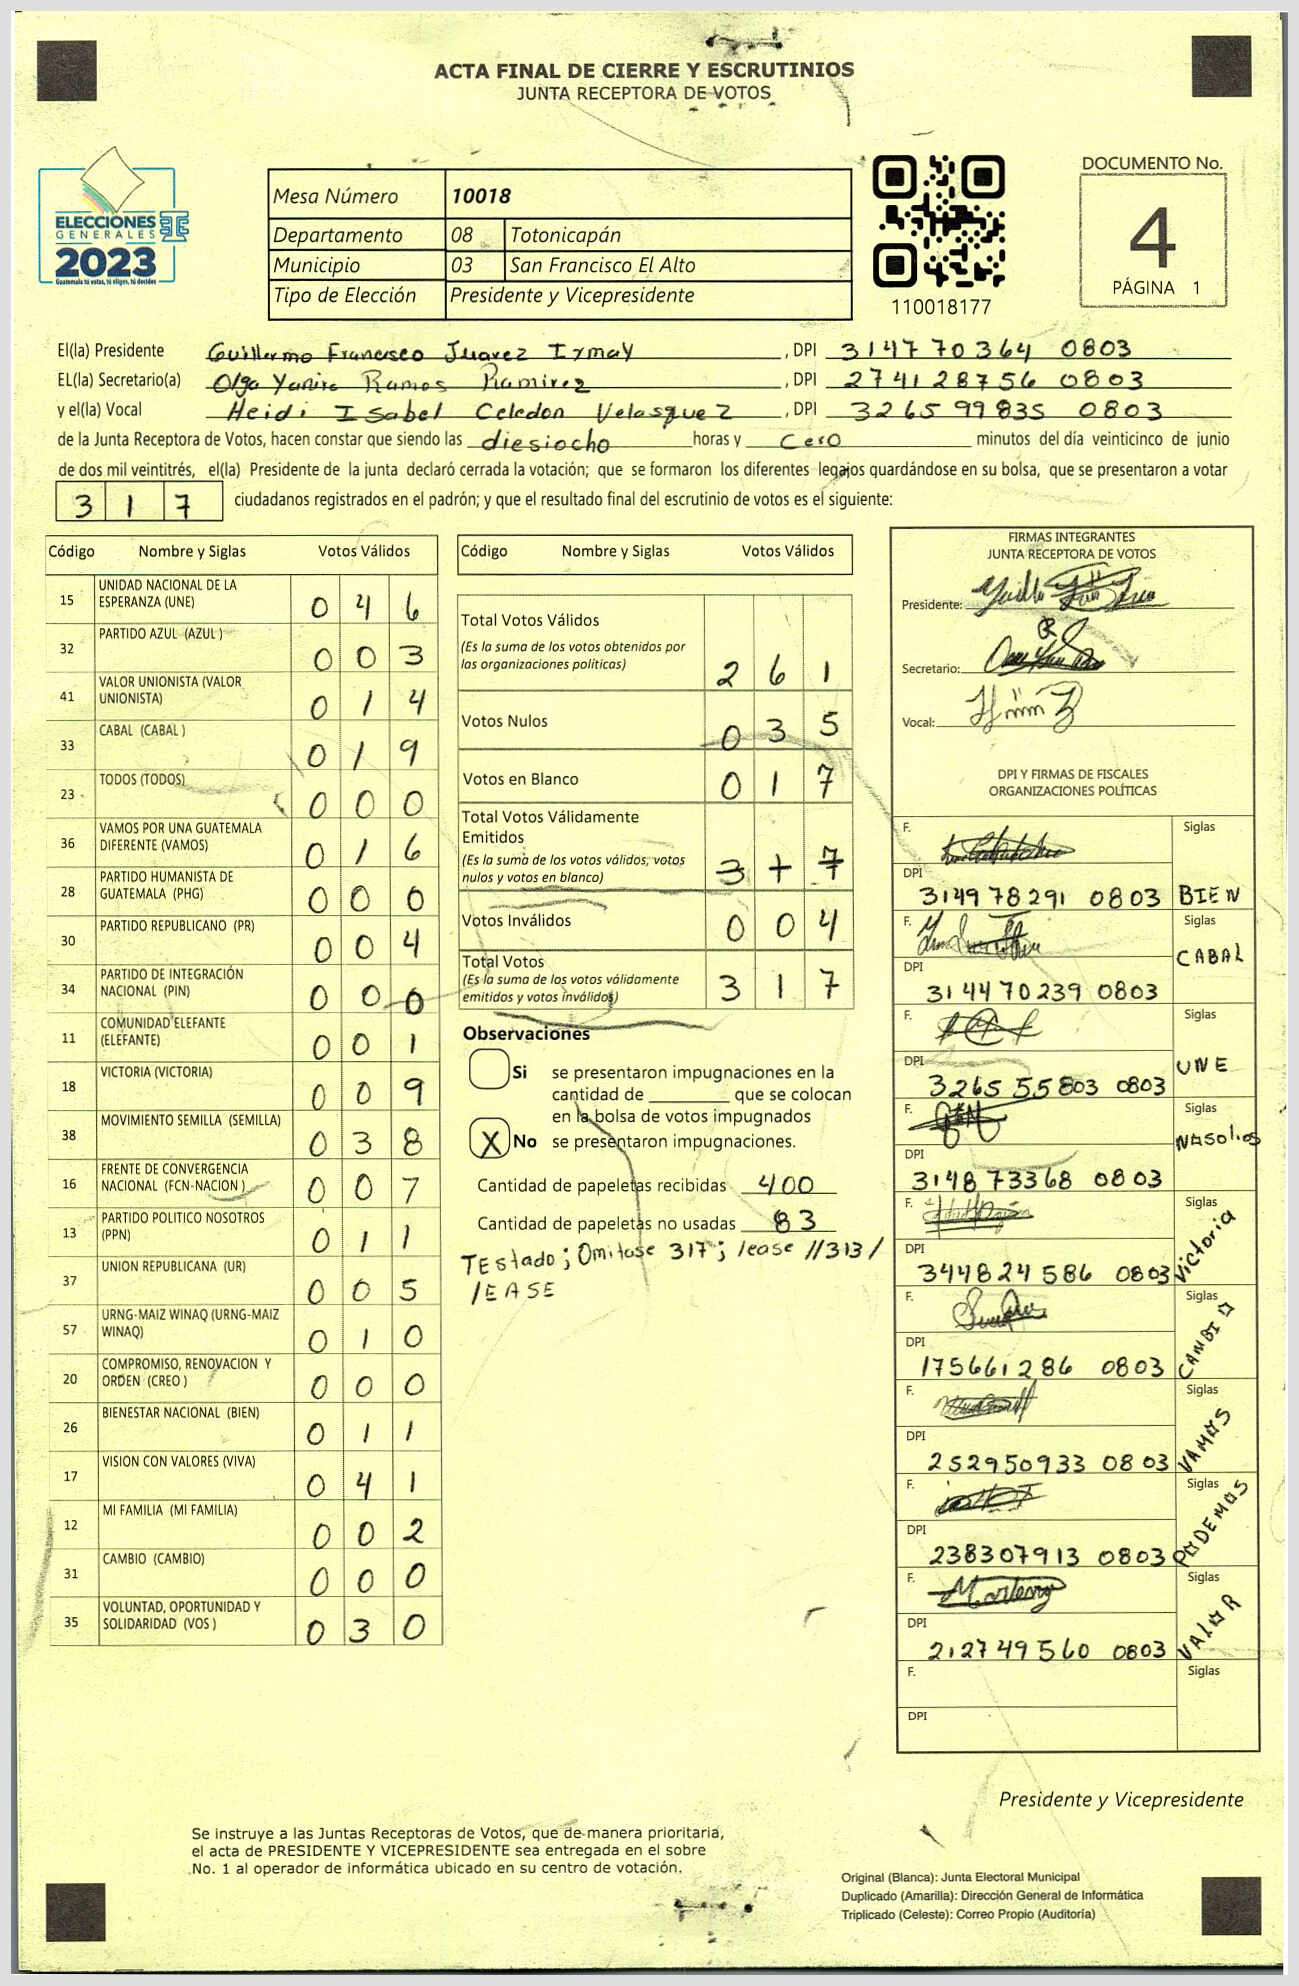 ACTA FINAL DE CIERRE Y ESCRUTINIOS
JUNTA RECEPTORA DE VOTOS
ELECCIONES
GENERALES
2023
Guatemala tú votas, tú eliges, tú decides
Mesa Número 10018
Departamento 08 Totonicapán
Municipio 03 San Francisco El Alto
Tipo de Elección Presidente y Vicepresidente
110018177
DOCUMENTO No.
4
PÁGINA 1
El(la) Presidente Guillermo Francisco Juarez Ixmay , DPI 3147 70364 0803
EL(la) Secretario(a) Olga Yanira Ramos Ramirez , DPI 2741 28756 0803
y el(la) Vocal Heidi Isabel Celedon Velasquez , DPI 3265 99835 0803
de la Junta Receptora de Votos, hacen constar que siendo las diesiocho horas y cero minutos del día veinticinco de junio
de dos mil veintitrés, el(la) Presidente de la junta declaró cerrada la votación; que se formaron los diferentes legajos quardándose en su bolsa, que se presentaron a votar
317 ciudadanos registrados en el padrón; y que el resultado final del escrutinio de votos es el siguiente:
Código Nombre y Siglas Votos Válidos
15 UNIDAD NACIONAL DE LA ESPERANZA (UNE) 046
32 PARTIDO AZUL (AZUL ) 003
41 VALOR UNIONISTA (VALOR UNIONISTA) 014
33 CABAL (CABAL ) 019
23 TODOS (TODOS) 000
36 VAMOS POR UNA GUATEMALA DIFERENTE (VAMOS) 016
28 PARTIDO HUMANISTA DE GUATEMALA (PHG) 000
30 PARTIDO REPUBLICANO (PR) 004
34 PARTIDO DE INTEGRACIÓN NACIONAL (PIN) 000
11 COMUNIDAD ELEFANTE (ELEFANTE) 001
18 VICTORIA (VICTORIA) 009
38 MOVIMIENTO SEMILLA (SEMILLA) 038
16 FRENTE DE CONVERGENCIA NACIONAL (FCN-NACION ) 007
13 PARTIDO POLITICO NOSOTROS (PPN) 011
37 UNION REPUBLICANA (UR) 005
57 URNG-MAIZ WINAQ (URNG-MAIZ WINAQ) 010
20 COMPROMISO, RENOVACION Y ORDEN (CREO ) 000
26 BIENESTAR NACIONAL (BIEN) 011
17 VISION CON VALORES (VIVA) 041
12 MI FAMILIA (MI FAMILIA) 002
31 CAMBIO (CAMBIO) 000
35 VOLUNTAD, OPORTUNIDAD Y SOLIDARIDAD (VOS ) 030
Código Nombre y Siglas Votos Válidos
Total Votos Válidos
(Es la suma de los votos obtenidos por
las organizaciones políticas) 261
Votos Nulos 035
Votos en Blanco 017
Total Votos Válidamente
Emitidos
(Es la suma de los votos válidos, votos
nulos y votos en blanco) 317
Votos Inválidos 004
Total Votos
(Es la suma de los votos válidamente
emitidos y votos inválidos) 317
Observaciones
Si se presentaron impugnaciones en la
cantidad de ________ que se colocan
en la bolsa de votos impugnados
X No se presentaron impugnaciones.
Cantidad de papeletas recibidas 400
Cantidad de papeletas no usadas 83
TEstado; Omitase 317; lease //313/
/EASE
FIRMAS INTEGRANTES
JUNTA RECEPTORA DE VOTOS
Presidente:
Secretario:
Vocal:
DPI Y FIRMAS DE FISCALES
ORGANIZACIONES POLÍTICAS
F. Siglas
DPI 3149 78291 0803 BIEN
F. Siglas
DPI 3144 70239 0803 CABAL
F. Siglas
DPI 3265 55803 0803 UNE
F. Siglas
DPI 3148 73368 0803
F. Siglas
DPI 3448 24 586 0803 Victoria
F. Siglas
DPI 175661286 0803 CAMBIO
F. Siglas
DPI 252950933 0803 VAMOS
F. Siglas
DPI 238307913 0803 PODEMOS
F. Siglas
DPI 212749560 0803 VALOR
F. Siglas
DPI
Presidente y Vicepresidente
Se instruye a las Juntas Receptoras de Votos, que de manera prioritaria,
el acta de PRESIDENTE Y VICEPRESIDENTE sea entregada en el sobre
No. 1 al operador de informática ubicado en su centro de votación.
Original (Blanca): Junta Electoral Municipal
Duplicado (Amarilla): Dirección General de Informática
Triplicado (Celeste): Correo Propio (Auditoría)